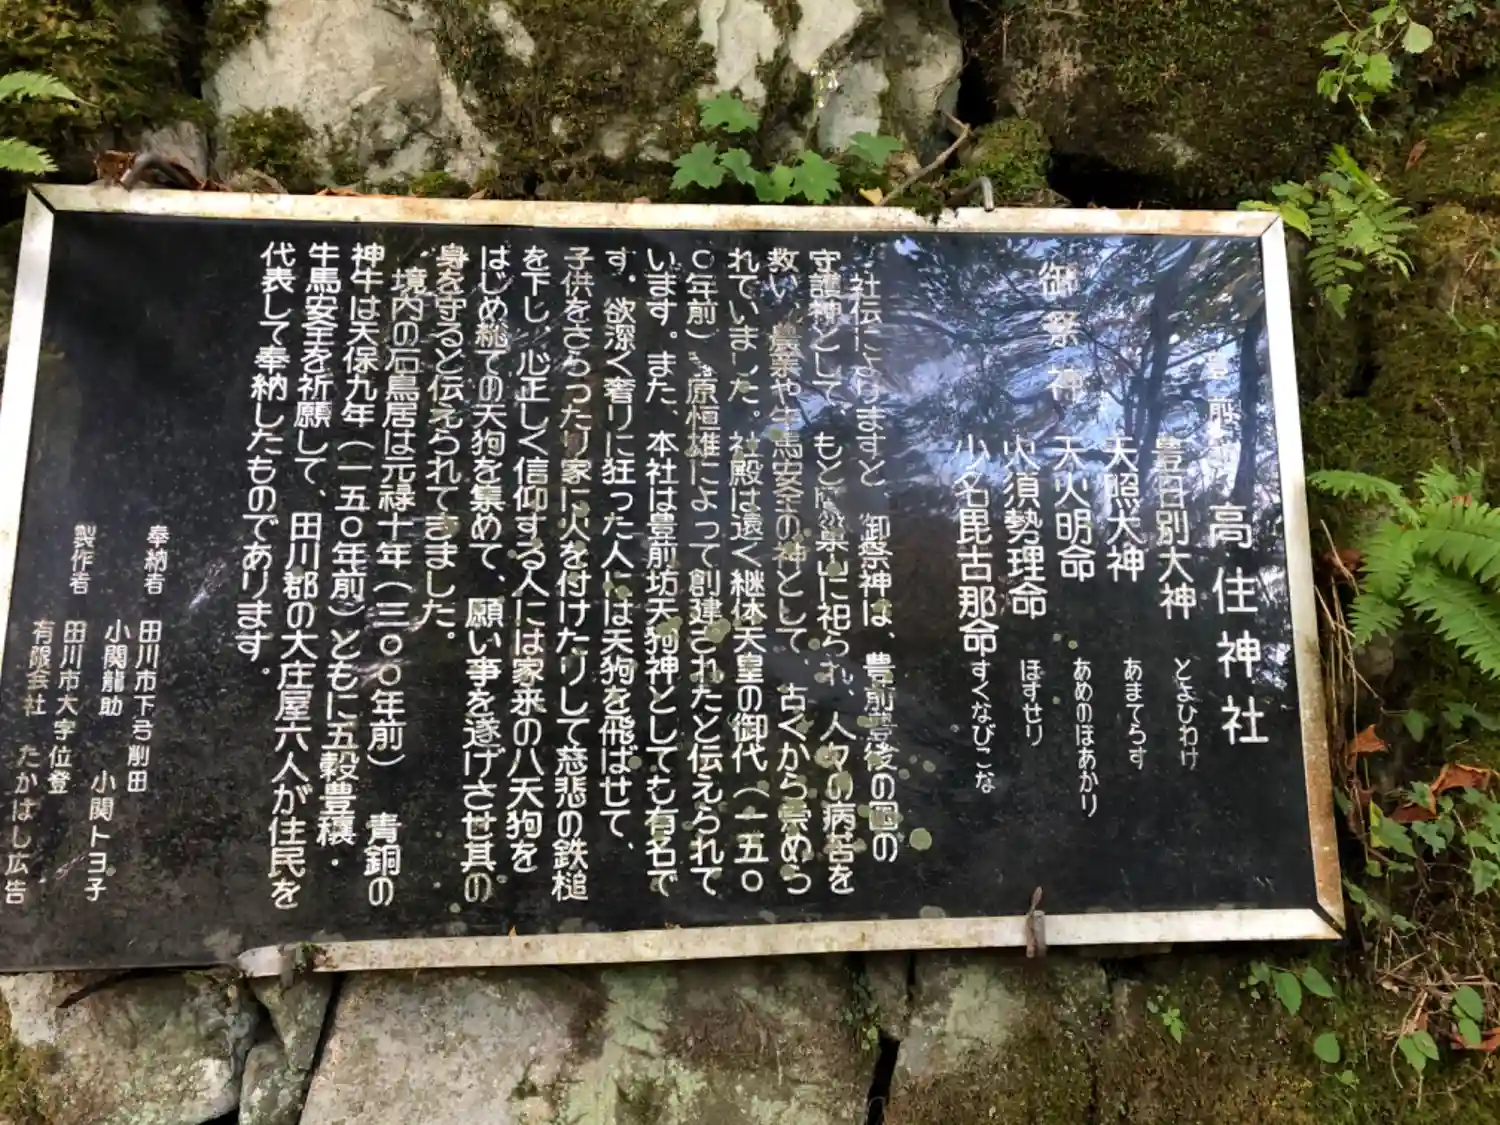 豊前 高住神社
御祭神
豊日別大神 とよひわけ
天照大神 あまてらす
天火明命 あめのほあかり
火須勢理命 ほすせり
少名毘古那命 すくなびこな
社伝によりますと、御祭神は、豊前豊後の国の
守護神として、もと鷹巣山に祀られ、人々の病苦を
救い、農業や牛馬安全の神として、古くから崇めら
れていました。社殿は遠く継体天皇の御代(一五〇
〇年前) 原恒雄によって創建されたと伝えられて
います。また、本社は豊前坊天狗神としても有名で
す。欲深く奢りに狂った人には天狗を飛ばせて、
子供をさらったり家に火を付けたりして慈悲の鉄槌
を下し、心正しく信仰する人には家来の八天狗を
はじめ総ての天狗を集めて、願い事を遂げさせ其の
身を守ると伝えられてきました。
境内の石鳥居は元禄十年(三〇〇年前) 青銅の
神牛は天保九年(一五〇年前)ともに五穀豊穣・
牛馬安全を祈願して、田川郡の大庄屋六人が住民を
代表して奉納したものであります。
奉納者 田川市下弓削田
小関龍助 小関トヨ子
製作者 田川市大字位登
有限会社 たかはし広告